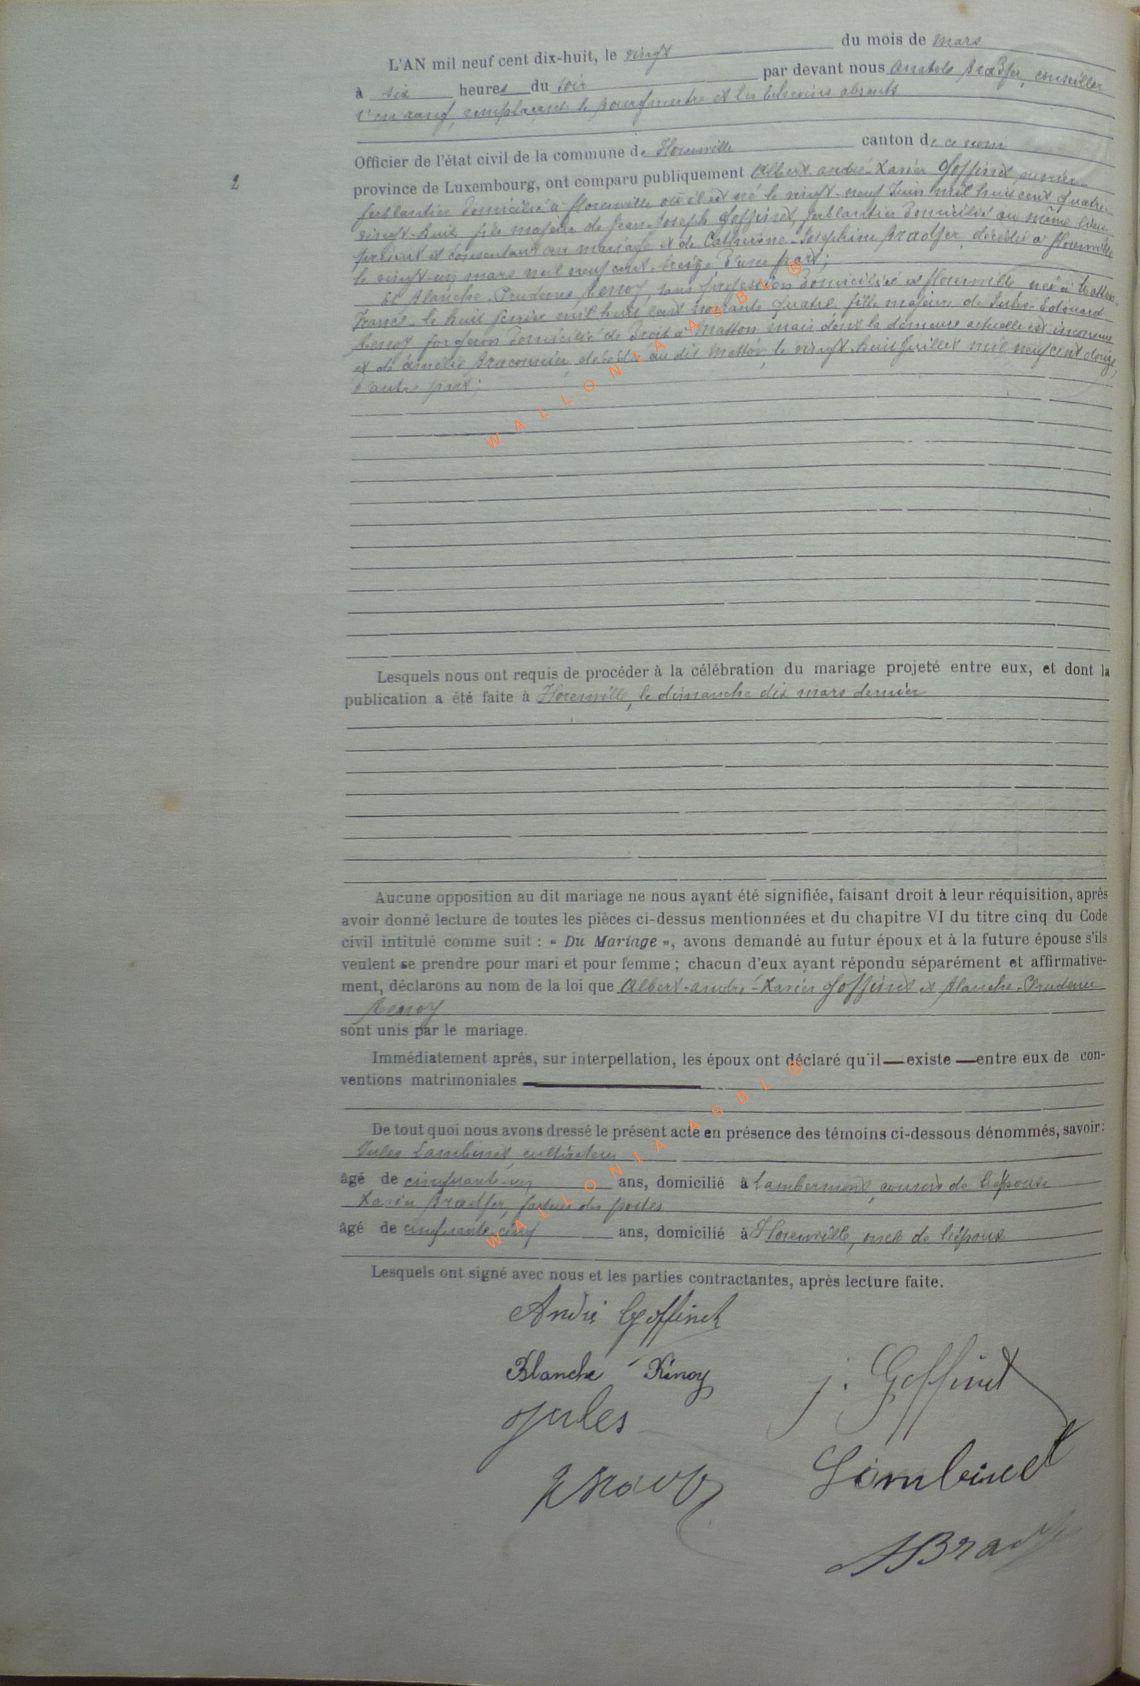 L'AN mil neuf cent dix-huit, le vingt du mois de mars
à six heures du soir par devant nous Anatole Bradfer, conseiller
1er en rang, remplaçant le bourgmestre et les échevins absents
Officier de l'état civil de la commune de Florenville canton de ce nom
2
province de Luxembourg, ont comparu publiquement Albert-André-Xavier Goffinet, ouvrier
ferblantier domicilié à Florenville où il est né le vingt-neuf Juin mil huit cent quatre-
vingt-huit fils majeur de Jean-Joseph Goffinet, ferblantier domicilié au même lieu
présent et consentant au mariage et de Catherine-Joséphine Bradfer, décédée à Florenville
le vingt-un mars mil neuf cent treize d'une part;
Et Blanche-Prudence Renoy, sans profession domiciliée à Florenville née à Matton
France le huit février mil huit cent nonante quatre fille majeure de Jules-Edouard
Renoy forgeron domicilié de droit à Matton mais dont la demeure actuelle est inconnue
et de Amélie Braconnier, décédée au dit Matton, le vingt-huit Juillet mil neuf cent douze,
d'autre part;
Lesquels nous ont requis de procéder à la célébration du mariage projeté entre eux, et dont la
publication a été faite à Florenville, le dimanche dix mars dernier
Aucune opposition au dit mariage ne nous ayant été signifiée, faisant droit à leur réquisition, après
avoir donné lecture de toutes les pièces ci-dessus mentionnées et du chapitre VI du titre cinq du Code
civil intitulé comme suit : « Du Mariage », avons demandé au futur époux et à la future épouse s'ils
veulent se prendre pour mari et pour femme ; chacun d'eux ayant répondu séparément et affirmative-
ment, déclarons au nom de la loi que Albert-André-Xavier Goffinet et Blanche-Prudence
Renoy
sont unis par le mariage.
Immédiatement après, sur interpellation, les époux ont déclaré qu'il — existe — entre eux de con-
ventions matrimoniales
De tout quoi nous avons dressé le présent acte en présence des témoins ci-dessous dénommés, savoir :
Jules Lambinet, cultivateur
âgé de cinquante-un ans, domicilié à Lambermont, cousin de l'épouse
Xavier Bradfer, facteur des postes
âgé de cinquante-cinq ans, domicilié à Florenville, oncle de l'époux
Lesquels ont signé avec nous et les parties contractantes, après lecture faite.
André Goffinet
Blanche Rénoy J. Goffinet
Jules Lambinet
WALLONIA ASBL ©
WALLONIA ASBL ©